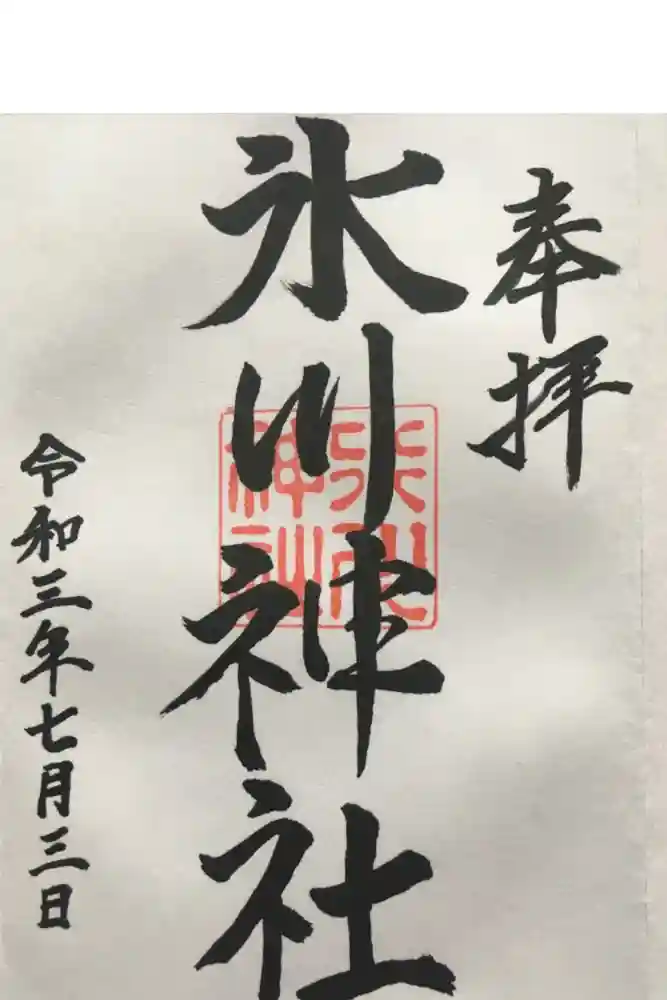 奉拝
氷川神社
令和三年七月三日